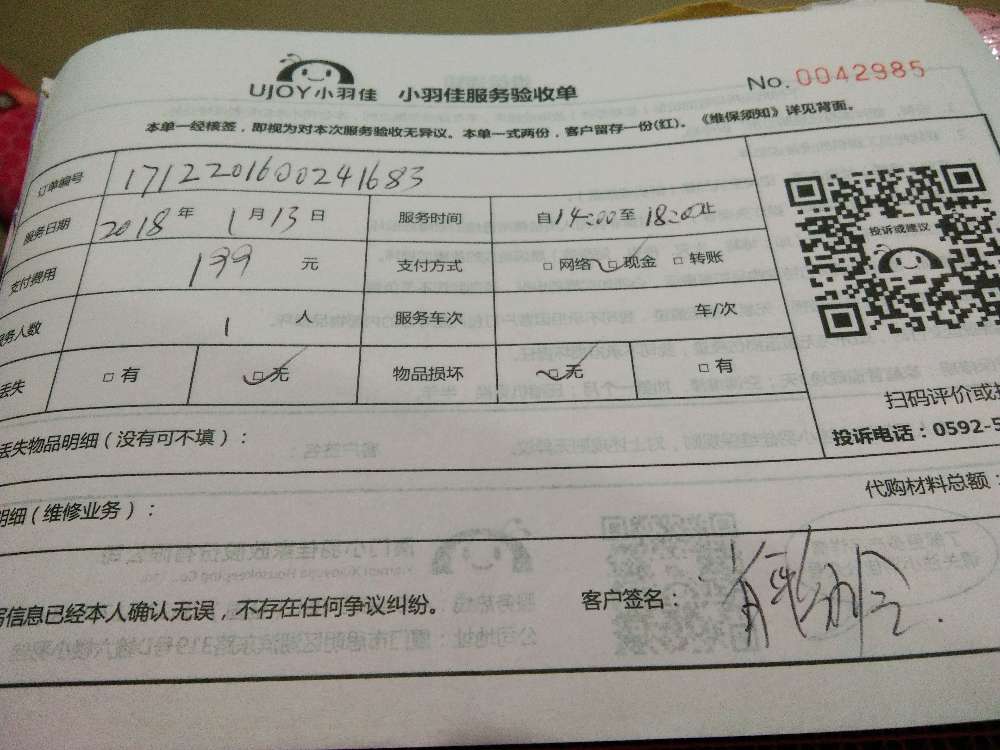 UJOY小羽佳 小羽佳服务验收单 No. 0042985
本单一经核签，即视为对本次服务验收无异议。本单一式两份，客户留存一份(红)。《维保须知》详见背面。
订单编号 1712201600241683
服务日期 2018 年 1 月 13 日 服务时间 自14:00至 18:00止
支付费用 199 元 支付方式 □ 网络 □ 现金 □ 转账
服务人数 1 人 服务车次 车/次
丢失 □ 有 □ 无 物品损坏 □ 无 □ 有
投诉或建议
扫码评价或
投诉电话：0592-5
丢失物品明细（没有可不填）：
明细（维修业务）： 代购材料总额：
信息已经本人确认无误，不存在任何争议纠纷。 客户签名：